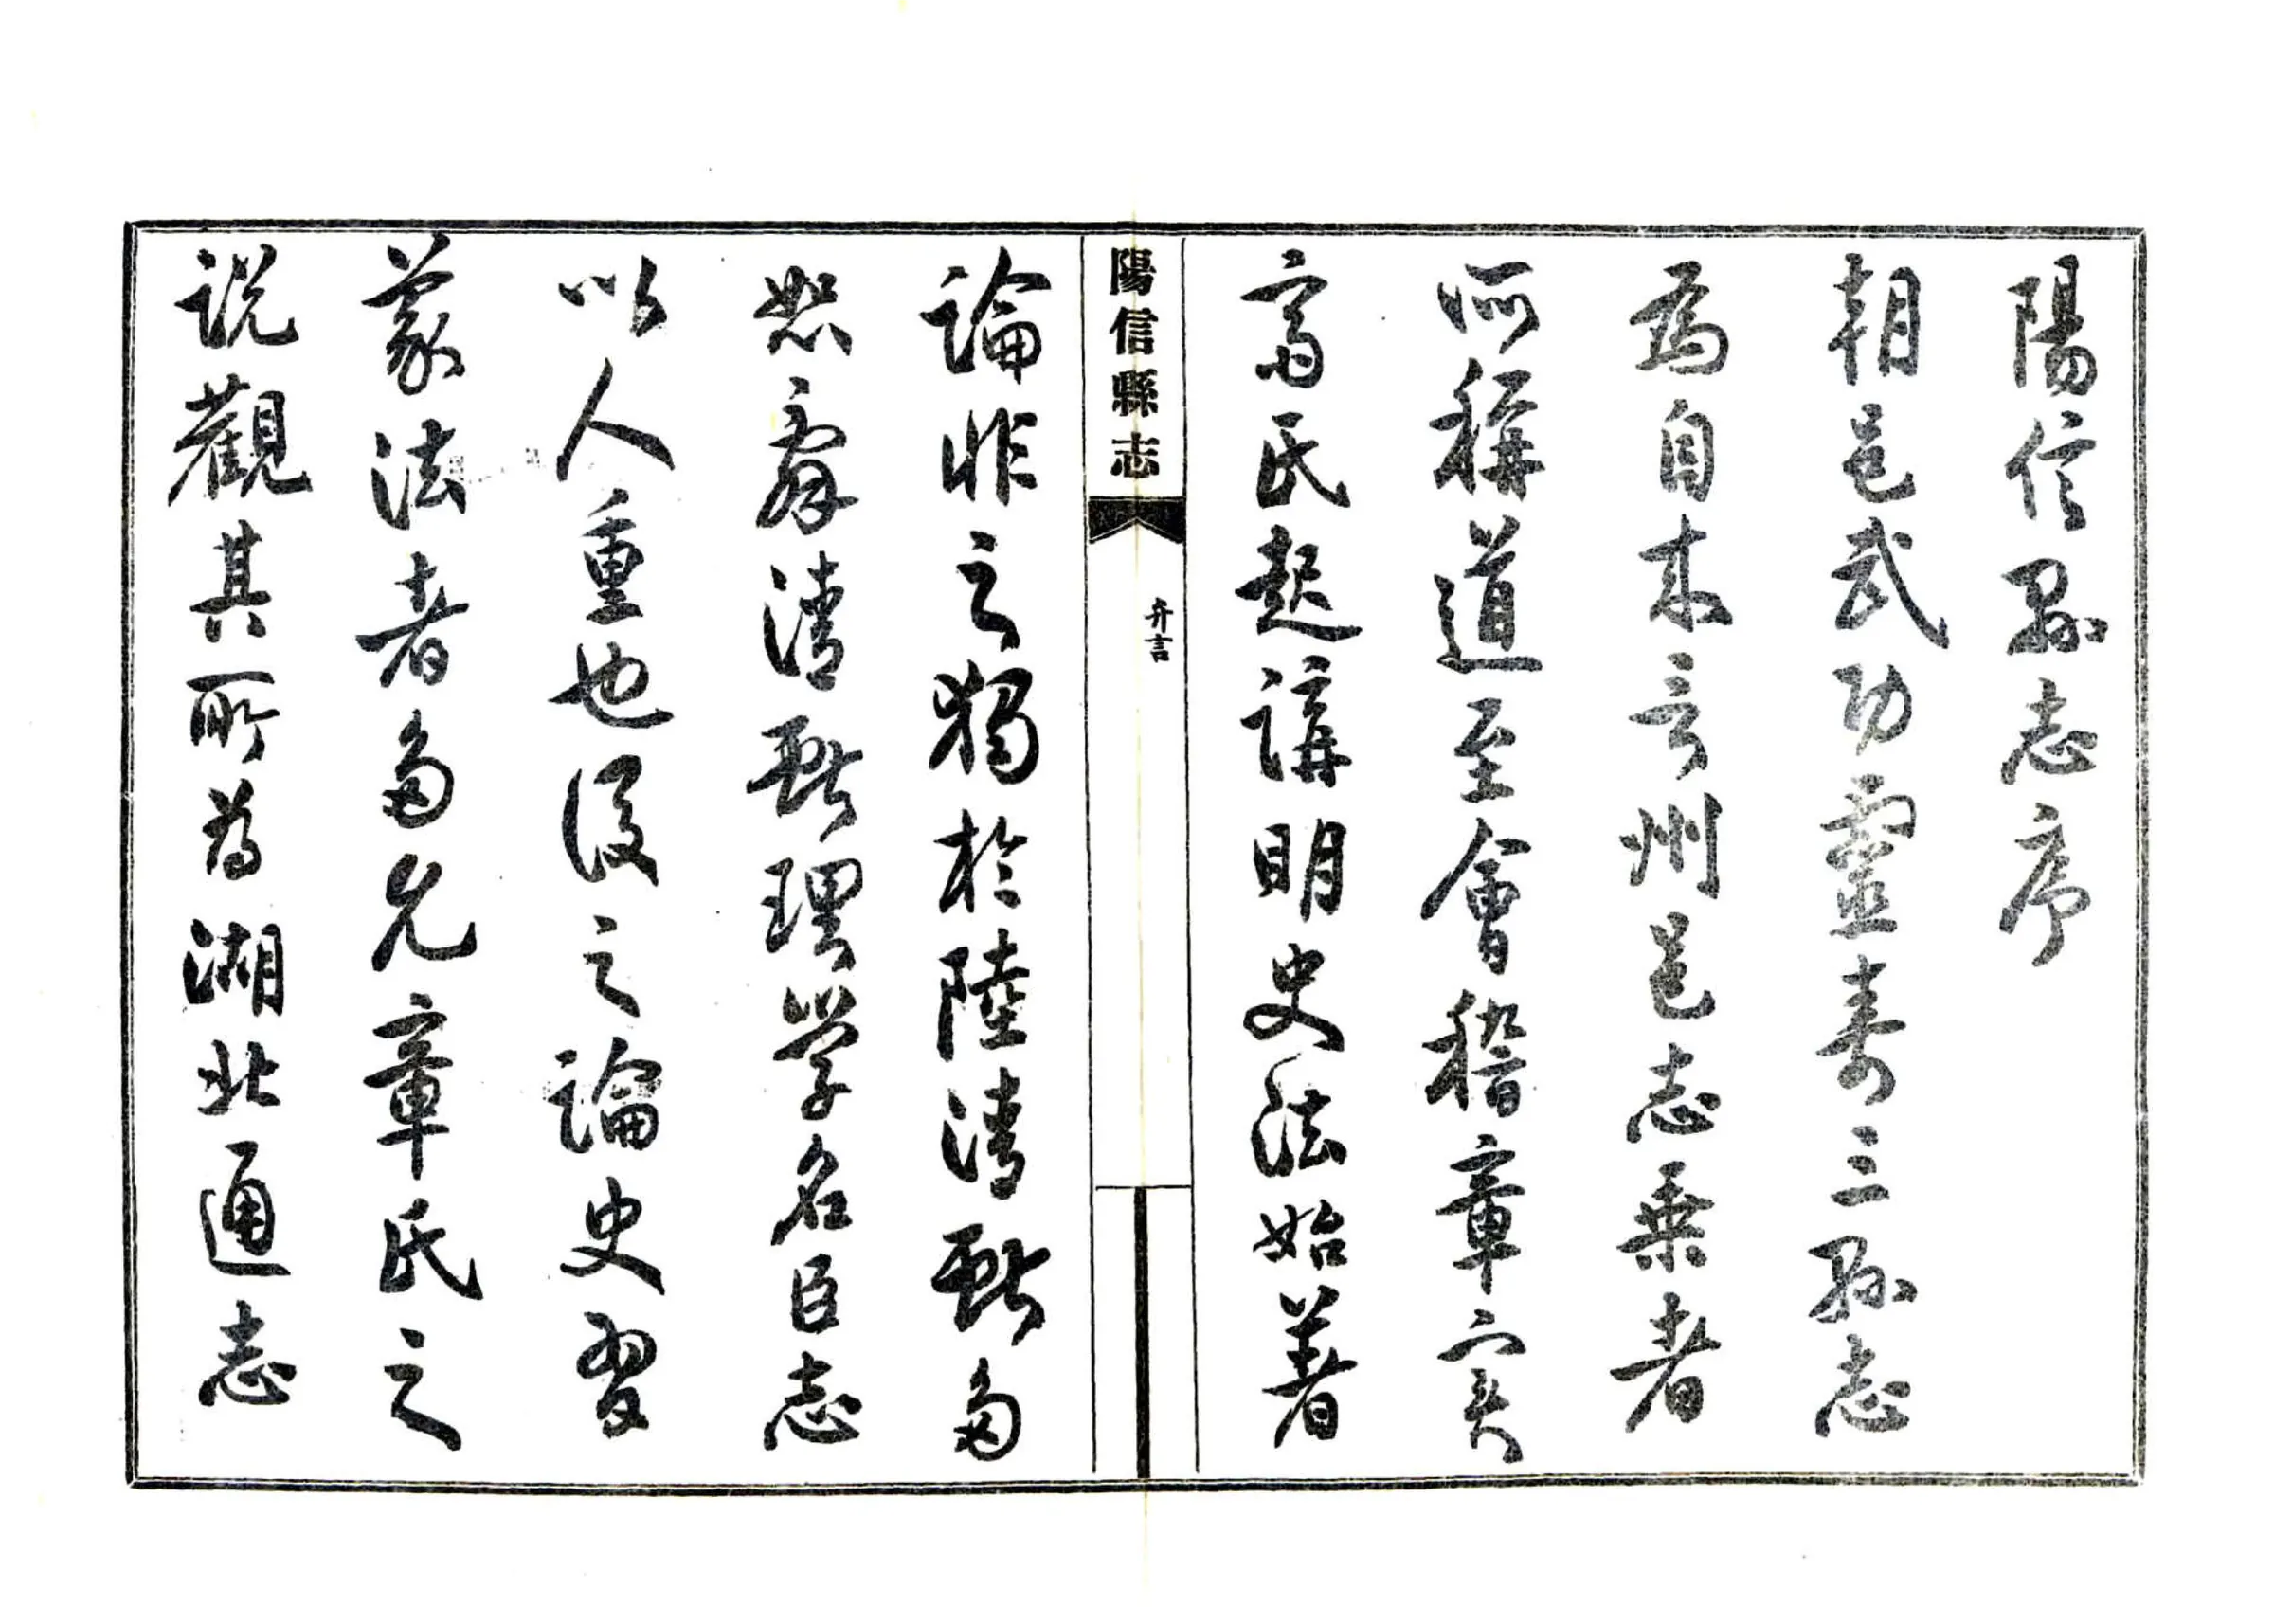 陽信縣志序
朝邑武功靈壽三縣志
為自來言州邑志乘者
所稱道至會稽章實
齋氏起講明史法始著
陽信縣志
弁言
論非之獨於陸清獻多
恕辭清獻理學名臣志
以人重也後之論史習
義法者多允章氏之
說觀其所為湖北通志